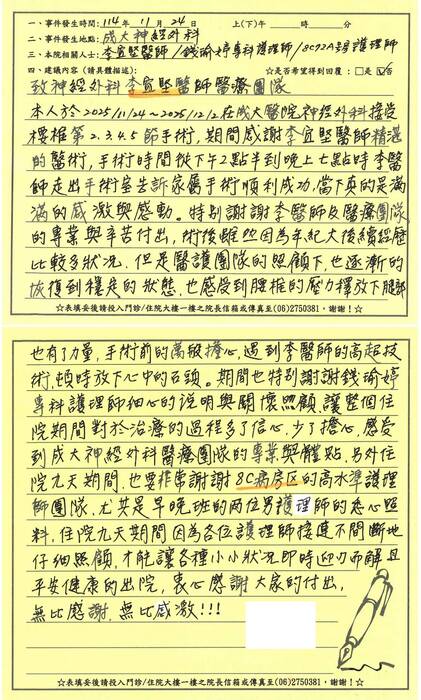 一、事件發生時間：114年 11月 24日 上(下)午 時 分
二、事件發生地點：成大神經外科
三、本院相關人士：李宜堅醫師/錢瑜婷專科護理師/8C72A吳護理師
四、建議內容(請具體描述)： ☆是否希望得到回覆：□是☑否
致神經外科李宜堅醫師醫療團隊
本人於2025/11/24~2025/12/2在成大醫院神經外科接受
腰椎第2.3.4.5節手術，期間感謝李宜堅醫師精湛
的醫術，手術時間從下午2點半到晚上七點時李醫
師走出手術室告訴家屬手術順利成功，當下真的是滿
滿的感激與感動。特別謝謝李醫師及醫療團隊
的專業與辛苦付出，術後雖然因為年紀大後續經歷
比較多狀況，但是醫護團隊的照顧下，也逐漸的
恢復到穩定的狀態，也感受到腰椎的壓力釋放下腿部
☆表填妥後請投入門診/住院大樓一樓之院長信箱或傳真至(06)2750381，謝謝！☆
也有了力量，手術前的萬般擔心，遇到李醫師的高超技
術，頓時放下心中的石頭。期間也特別謝謝錢瑜婷
專科護理師細心的說明與關懷照顧，讓整個住
院期間對於治療的過程多了信心，少了擔心，感受
到成大神經外科醫療團隊的專業與體貼。另外住
院九天期間，也要非常謝謝8C病房區的高水準護理
師團隊，尤其是早晚班的兩位男護理師的悉心照
料，住院九天期間因為各位護理師接連不間斷地
仔細照顧，才能讓各種小小狀況即時迎刃而解且
平安健康的出院，衷心感謝大家的付出，
無比感謝，無比感激!!!
☆表填妥後請投入門診/住院大樓一樓之院長信箱或傳真至(06)2750381，謝謝！☆